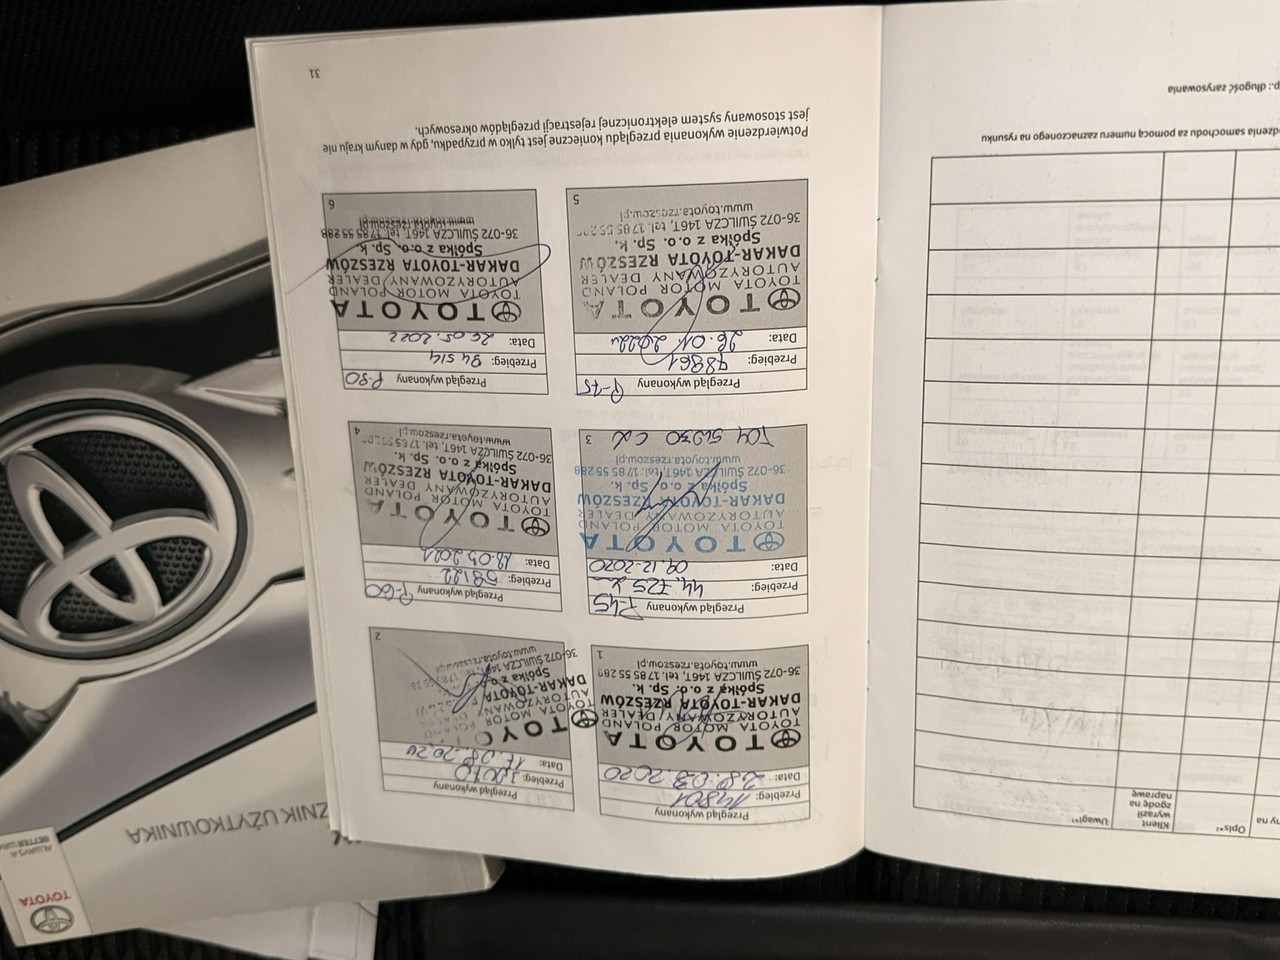 31
Potwierdzenie wykonania przeglądu konieczne jest tylko w przypadku, gdy w danym kraju nie
jest stosowany system elektronicznej rejestracji przeglądów okresowych.
Przegląd wykonany
Przebieg: 14801
Data: 28.03.2020
TOYOTA
TOYOTA MOTOR POLAND
AUTORYZOWANY DEALER
DAKAR-TOYOTA RZESZÓW
Spółka z o.o. Sp. k.
36-072 ŚWILCZA 146T, tel. 17 85 55 288
www.toyota.rzeszow.pl
1
Przegląd wykonany
Przebieg: 30070
Data: 17.08.2020
TOYOTA
TOYOTA MOTOR POLAND
AUTORYZOWANY
DAKAR-TOYOTA
Spółka z o.o.
36-072 ŚWILCZA 146T,
www.toyota.rzeszow.pl
2
Przegląd wykonany P-45
Przebieg: 44.725
Data: 09.12.2020
TOYOTA
TOYOTA MOTOR POLAND
AUTORYZOWANY DEALER
DAKAR-TOYOTA RZESZÓW
Spółka z o.o. Sp. k.
36-072 ŚWILCZA 146T, tel. 17 85 55 288
www.toyota.rzeszow.pl
3
Przegląd wykonany P-60
Przebieg: 58122
Data:
TOYOTA
TOYOTA MOTOR POLAND
AUTORYZOWANY DEALER
DAKAR-TOYOTA RZESZÓW
Spółka z o.o. Sp. k.
36-072 ŚWILCZA 146T, tel. 17 85 55
www.toyota.rzeszow.pl
4
Przegląd wykonany P-75
Przebieg: 78861
Data: 26.01.2022
TOYOTA
TOYOTA MOTOR POLAND
AUTORYZOWANY DEALER
DAKAR-TOYOTA RZESZÓW
Spółka z o.o. Sp. k.
36-072 ŚWILCZA 146T, tel. 17 85 55
www.toyota.rzeszow.pl
5
Przegląd wykonany P-90
Przebieg: 94514
Data: 26.05.2022
TOYOTA
TOYOTA MOTOR POLAND
AUTORYZOWANY DEALER
DAKAR-TOYOTA RZESZÓW
Spółka z o.o. Sp. k.
36-072 ŚWILCZA 146T, tel. 17 85 55 288
www.toyota.rzeszow.pl
6
Opis*²
Klient
wyraził
zgodę na
naprawę
Uwagi*³
samochodu za pomocą numeru zaznaczonego na rysunku
długość zarysowania
UŻYTKOWNIKA
TOYOTA
ALWAYS A
BETTER WAY